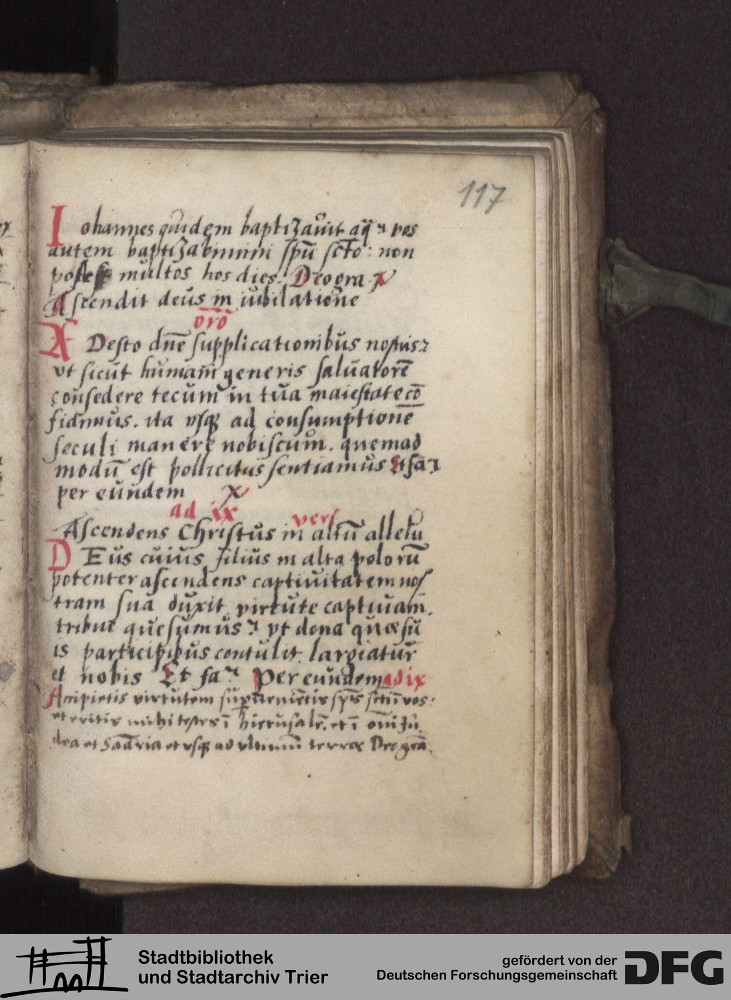 117
Iohannes quidem baptizauit aq̄ ⁊ vos
autem baptizabimini spū scto: non
post multos hos dies. Deo gra
Ascendit deus in iubilatione
orō
ADesto dn̄e supplicationibus nostris:
vt sicut humani generis saluatorē
consedere tecum in tua maiestate cō
fidimus. ita vsq ad consumptionē
seculi manere nobiscum. quemad
modū est pollicitus sentiamus Et fa⁊
per eundem
ad ix vers
Ascendens Christus in altū allelu
DEus cuius filius in alta polorū
potenter ascendens captiuitatem nos
tram sua duxit virtute captiuam.
tribue quesumus: vt dona que su
is participibus contulit largiatur
et nobis Et fa⁊ Per eundem ad ix
Accipietis virtutem superuenietis spūs scti ī vos:
et eritis mihi testes ī hierusalē. et ī omī Iu
dea et Samaria et vsq ad vltimū terrae Deo grā.
Stadtbibliothek
und Stadtarchiv Trier
gefördert von der
Deutschen Forschungsgemeinschaft
DFG